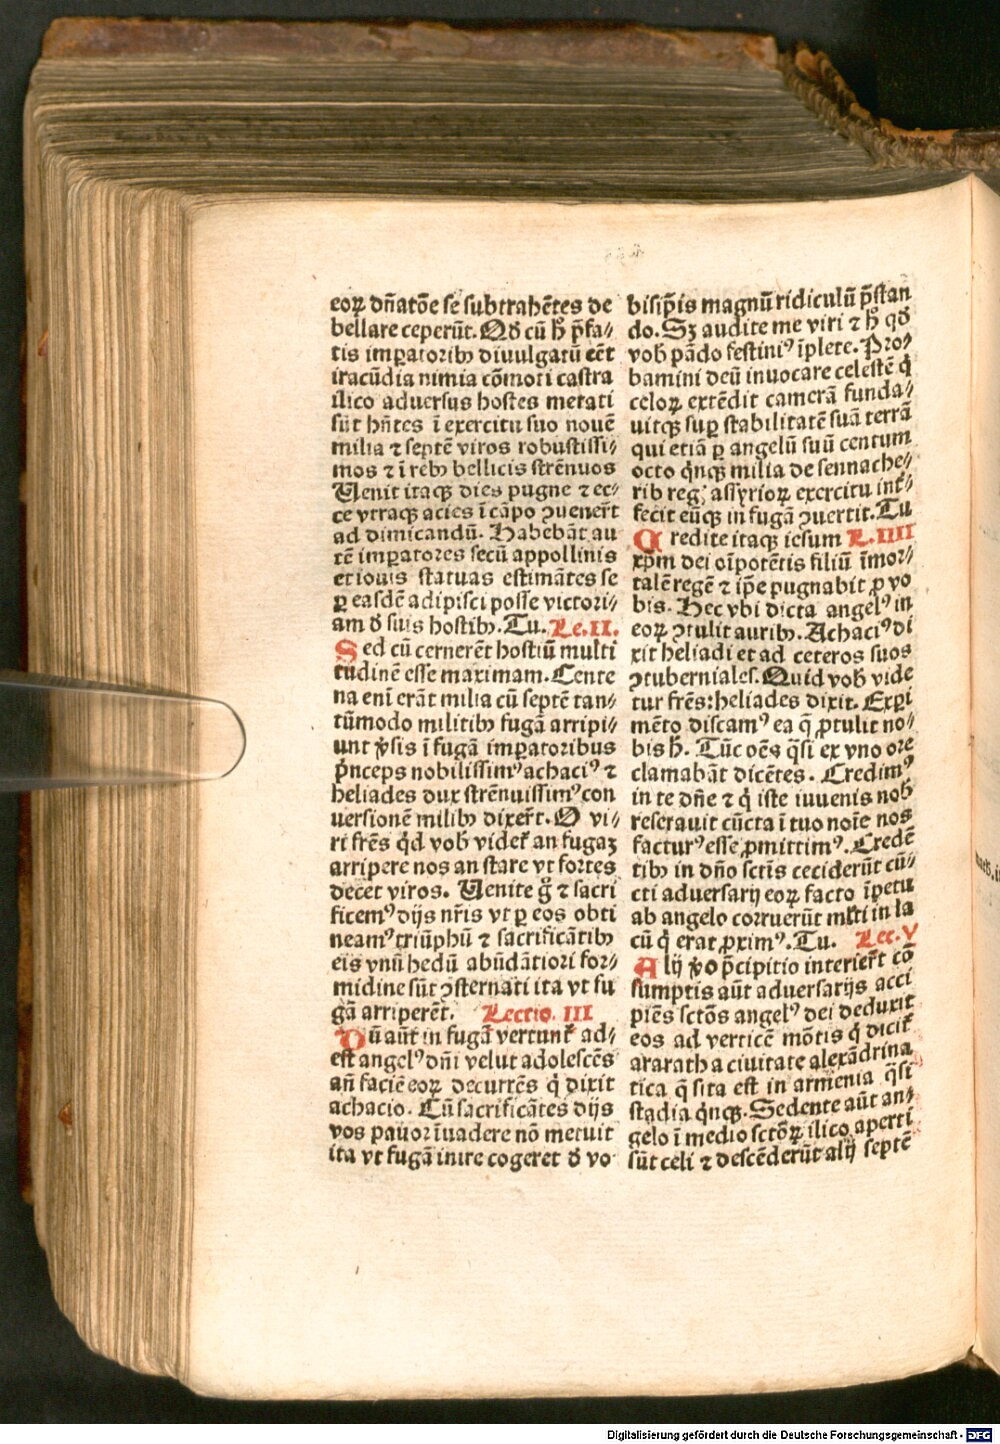 eoꝝ dñatōe se subtrahētes de
bellare ceperūt. Qd̄ cū h̄ p̄fa⸗
tis imꝑatoribꝫ diuulgatū eēt
iracūdia nimia cōmoti castra
illico aduersus hostes metati
sūt hn̄tes ī exercitu suo nouē
milia ⁊ septē viros robustissi⸗
mos ⁊ ī rebꝫ bellicis strēnuos
Uenit itaqꝫ dies pugne ⁊ ec⸗
ce vtraqꝫ acies ī cāpo ꝯuener̄t
ad dimicandū. Habebāt au
tē imperatores secū appollinis
et iouis statuas estimātes se
ꝑ easdē adipisci posse victori⸗
am d̄ suis hostibꝫ. Tu. Le. II.
Sed cū cernerēt hostiū multi
tudinē esse maximam. Cente
na enī erāt milia cū septē tan⸗
tūmodo militibꝫ fugā arripi⸗
unt v̓sis ī fugā imꝑatoribus
p̄nceps nobilissimꝰ achaciꝰ ⁊
heliades dux strēnuissimꝰ con
uersionē milibꝫ dixer̄t. O vi⸗
ri frēs qͥd vob̄ videt᷑ an fugaꝫ
arripere nos an stare vt fortes
decet viros. Uenite ḡ ⁊ sacri
ficemꝰ dijs nr̄is vt ꝑ eos obti
neamꝰ triūphū ⁊ sacrificātibꝫ
eis vnū hedū abūdātiori for⸗
midine sūt ꝯsternati ita vt fu
gā arriperēt. Lectio. III
Dū aūt in fugā vertunt᷑ ad⸗
est angelꝰ dn̄i velut adolescēs
an̄ faciē eoꝝ decurrēs qͥ dixit
achacio. Cū sacrificātes dijs
vos pauor īuadere nō metuit
ita vt fugā inire cogeret d̄ vo
bisip̄is magnū ridiculū p̄stan
do. Sꝫ audite me viri ⁊ h̄ qd̄
vob̄ pādo festiniꝰ īplete. Pro⸗
bamini deū inuocare celestē qͥ
celoꝝ extēdit camerā funda⸗
uitqꝫ suꝑ stabilitatē suā terrā
qui etiā ꝑ angelū suū centum
octo qͥnqꝫ milia de sennache⸗
rib reg; assyrioꝝ exercitu int̄⸗
fecit eūqꝫ in fugā ꝯuertit. Tu
Credite itaqꝫ iesum L. IIII
xp̄m dei oīpotētis filiū īmor⸗
talē regē ⁊ ip̄e pugnabit ꝓ vo
bis. Hec vbi dicta angelꝰ in
eoꝝ ꝯtulit auribꝫ. Achaciꝰ di
xit heliadi et ad ceteros suos
ꝯtuberniales. Quid vob̄ vide
tur frēs: heliades dixit. Exꝑi
mēto discamꝰ ea q̄ ꝓtulit no⸗
bis h̄. Tūc oēs q̄si ex vno ore
clamabāt dicētes. Credimꝰ
in te dn̄e ⁊ qͥ iste iuuenis nob̄
reserauit cūcta ī tuo noīe nos
facturꝰ esse ꝓmittimꝰ. Credē
tibꝫ in dn̄o sctīs ceciderūt cū⸗
cti aduersarij eoꝝ facto īpetu
ab angelo corruerūt ml̄ti in la
cū qͥ erat ꝓximꝰ. Tu. Lec. V
Alij v̓o p̄cipitio interier̄t cō
sumptis aūt aduersarijs acci
piēs sctōs angelꝰ dei deduxit
eos ad verticē mōtis qͥ dicit᷑
ararath a ciuitate alexādrina
tica q̄ sita est in armenia q̄si
stadia qͥnqꝫ. Sedente aūt an⸗
gelo ī medio sctōꝝ ilico aperti
sūt celi ⁊ descēderūt alij septē
Digitalisierung gefördert durch die Deutsche Forschungsgemeinschaft - DFG